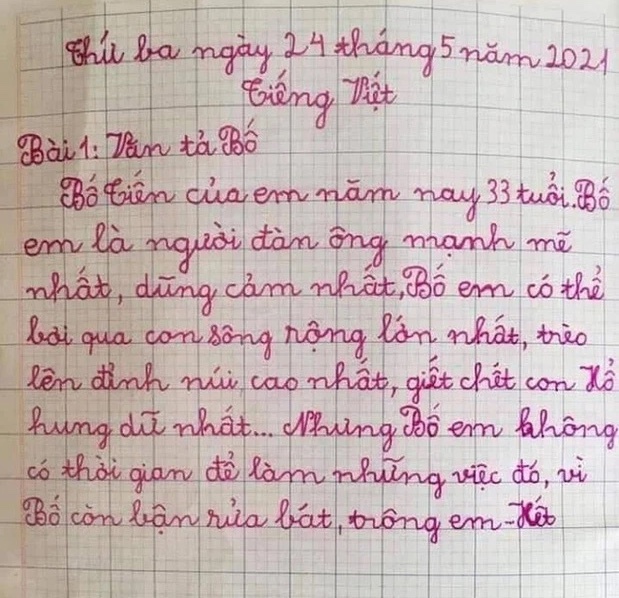 Thứ ba ngày 24 tháng 5 năm 2021
Tiếng Việt
Bài 1: Văn tả Bố
Bố Tiến của em năm nay 33 tuổi. Bố
em là người đàn ông mạnh mẽ
nhất, dũng cảm nhất, Bố em có thể
bơi qua con sông rộng lớn nhất, trèo
lên đỉnh núi cao nhất, giết chết con Hổ
hung dữ nhất... Nhưng Bố em không
có thời gian để làm những việc đó, vì
Bố còn bận rửa bát, trông em - Hết